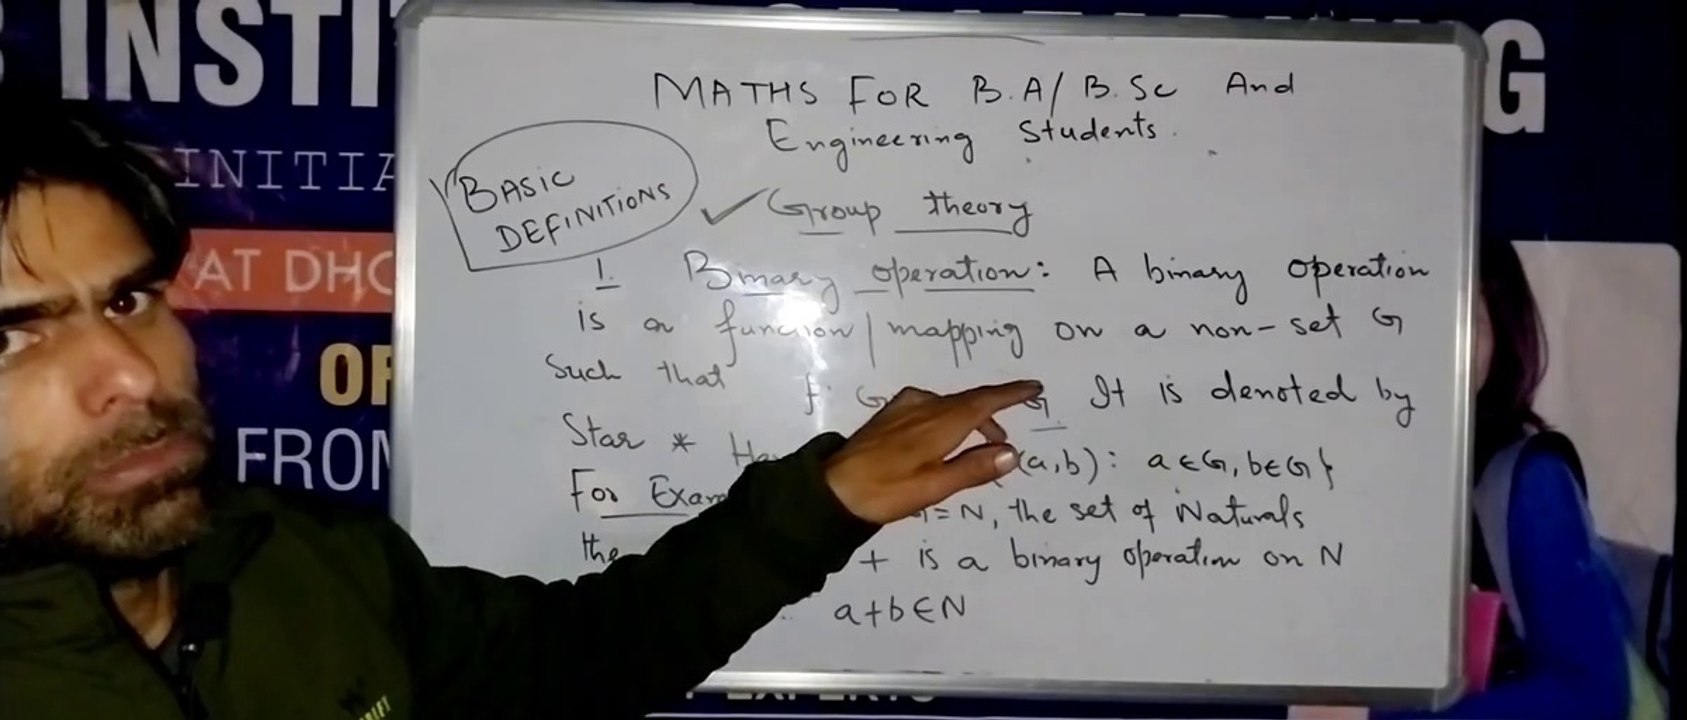 INSTI
G
INITIA
AT DHO
OF
FROM
MATHS FOR B.A/B.Sc And
Engineering Students.
BASIC
DEFINITIONS
Group theory
1. Binary operation: A binary operation
is a function/mapping on a non-set G
Such that f: G It is denoted by
Star * (a,b): a∈G, b∈G}
For =N, the set of Naturals
the + is a binary operation on N
a+b∈N